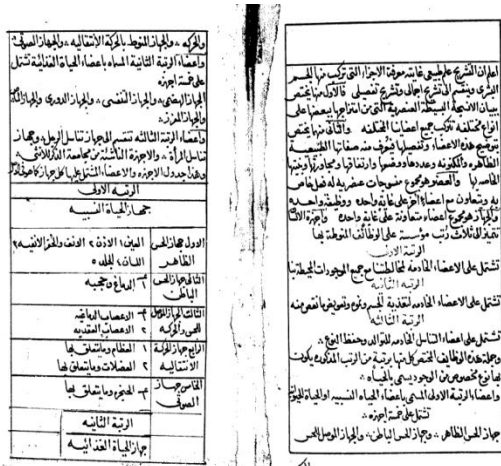 اعلم ان التشريح علم طبيعي غايته معرفة الاجزاء التي تركب منها الجسم
البشري وينقسم الى تشريح اجمالي وتشريح تفصيلي فالاول منها يختص
ببيان الانسجة البسيطة العنصرية التي من امتزاجها بعضها على
انواع مختلفة تركب جميع اعضائنا المختلفه والثاني منها يختص
بتوضيح هذه الاعضاء وتفصيلها فيعرف منه صفاتها
الظاهره والمكونه وعددها ووضعها وارتفاقاتها ومجاورتها وبنيتها
الخاصه بها والعضو هو مجموع منسوجات عنصريه له فعل خاص
به ويتعاون مع اعضاء اخر على غاية واحدة ووظيفة واحده
والجهاز هو مجموع اعضاء متعاونة على غاية واحده واجهزة
تتميز الى ثلاث رتب مؤسسة على الوظائف المنوطة بها
الرتبة الاولى
تشتمل على الاعضاء الخادمه لمخالطتنا مع جميع الموجودات المحيطة بنا
الرتبة الثانيه
تشتمل على الاعضاء الخادمه لتغذية الجسم ونموه وتعويض ما نقص منه
الرتبة الثالثه
تشتمل على اعضاء التناسل الخادمه للتوالد وحفظ النوع
وجملة هذه الوظائف المختص كل منها برتبة من الرتب المذكوره يكون
بها نوع مخصوص من الوجود يسمى بالحياه
واعضاء الرتبة الاولى المسمى باعضاء الحياه النسبيه او الحياة الحيوانية
تشتمل على خمسة اجهزه
جهاز الحس الظاهر وجهاز الحس الباطن والجهاز الموصل للحس
والحركه والجهاز المنوط بالحركة الانتقاليه والجهاز الصوتي
واعضاء الرتبة الثانية المسماه باعضاء الحياة الغذائية تشتمل
على خمسة اجهزه
الجهاز الهضمي والجهاز التنفسي والجهاز الدوري والجهاز
والجهاز المفرز
واعضاء الرتبة الثالثه تنقسم الى جهاز تناسل الرجل وجهاز
تناسل المرأة والاجهزة الناشئة من مجامعة الذكر للانثى
وهذا جدول الاجهزه والاعضاء المشتمل عليها كل جهاز
الرتبه الاولى
جهاز الحياة النسبيه
الاول جهاز الحس الظاهر
العين ١ الاذن ٢ الانف والحفر الانفيه ٣
اللسان ٤ الجلد ٥
الثاني جهاز الحس الباطن
الدماغ وحجبه
الثالث الجهاز الموصل للحس والحركه
الاعصاب الدماغيه
٢ الاعصاب العقديه
الرابع جهاز الحركة الانتقاليه
١ العظام وما يتعلق بها
٢ العضلات وما يتعلق بها
الخامس جهاز الصوت
الحنجره وما يتعلق بها
الرتبة الثانيه
جهاز الحياة الغذائيه